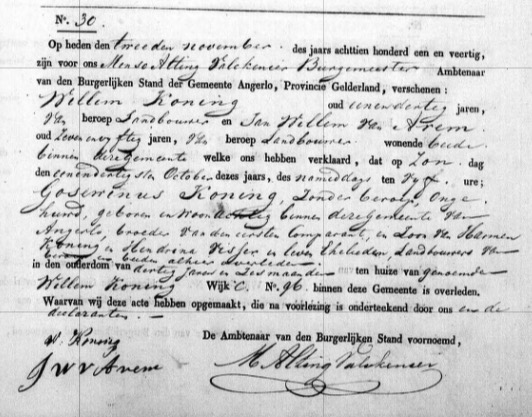 No. 30.
Op heden den tweeden november des jaars achttien honderd een en veertig,
zijn voor ons Menso Alting Valckenier Burgemeester Ambtenaar
van den Burgerlijken Stand der Gemeente Angerlo, Provincie Gelderland, verschenen:
Willem Koning oud eenendertig jaren,
van beroep Landbouwer en Jan Willem van Arem
oud zevenenvyftig jaren, van beroep Landbouwer wonende beide
binnen deze gemeente welke ons hebben verklaard, dat op Zon dag
den eenendertigsten October dezes jaars, des namiddags ten vyf ure;
Goswinus Koning, zonder beroep, Onge
huwd, geboren en woonachtig binnen deze gemeente van
Angerlo, broeder van den eersten Comparant, en Zoon van Harmen
Koning en Hendrina Visser in leven Ehelieden, Landbouwers van
beroep en beiden alhier overleden
in den ouderdom van dertig jaren en zes maanden ten huize van genoemde
Willem Koning Wijk C. No. 96. binnen deze Gemeente is overleden.
Waarvan wij deze acte hebben opgemaakt, die na voorlezing is onderteekend door ons en de
declaranten. —
De Ambtenaar van den Burgerlijken Stand voornoemd,
W. Koning
J W v Arem
M Alting Valckenier